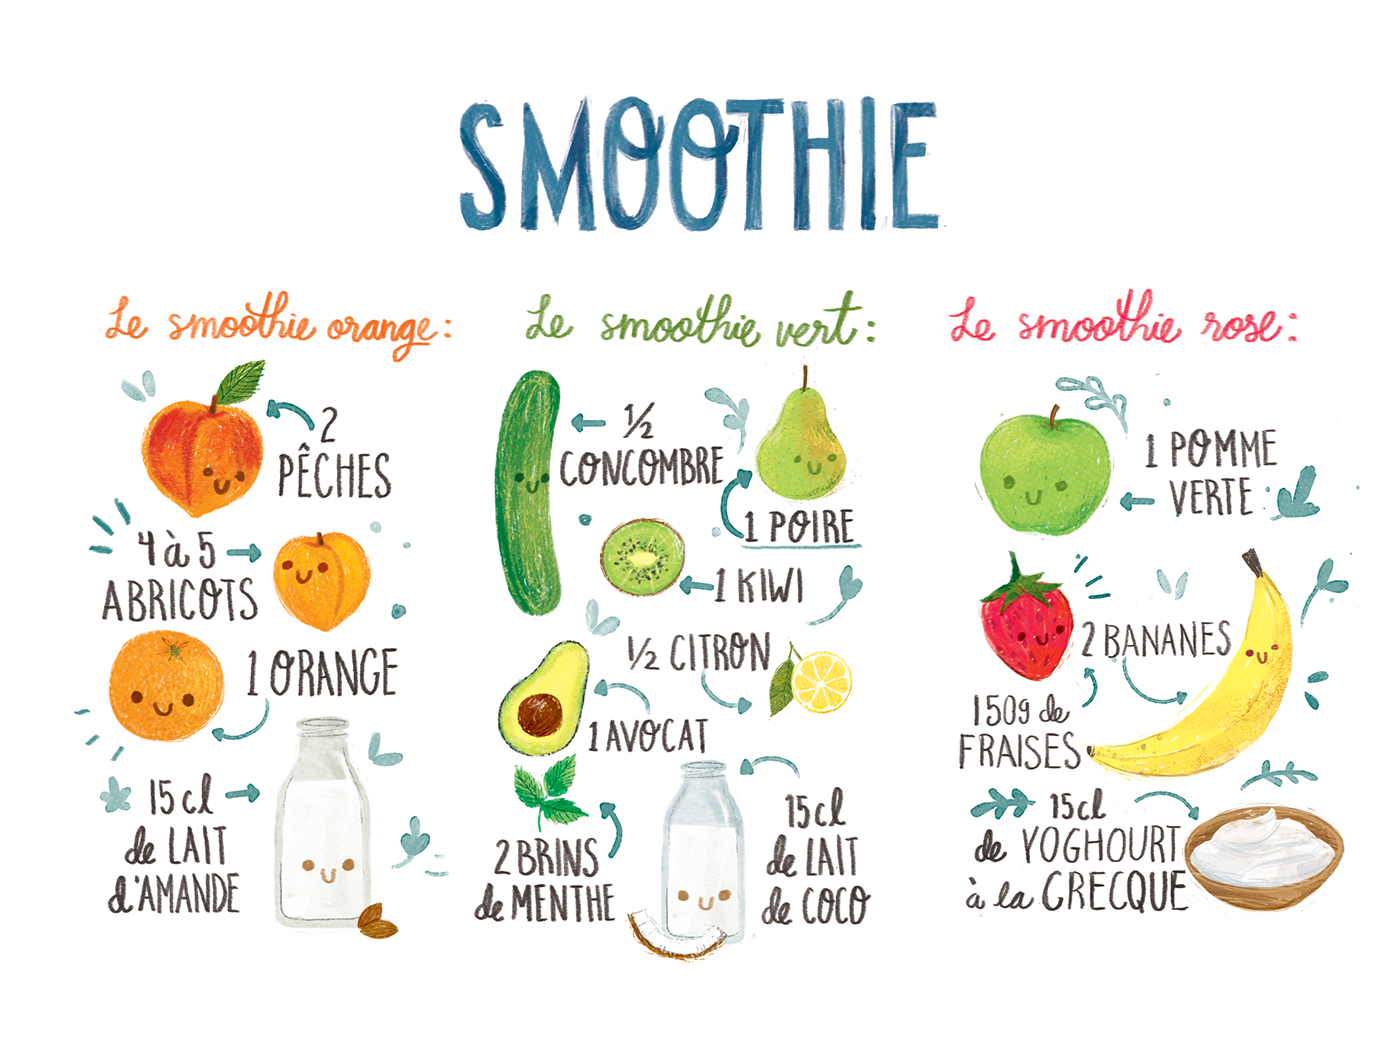 SMOOTHIE
Le smoothie orange:
2
PÊCHES
4 à 5
ABRICOTS
1 ORANGE
15 cl
de LAIT
d'AMANDE
Le smoothie vert:
1/2
CONCOMBRE
1 POIRE
1 KIWI
1/2 CITRON
1 AVOCAT
2 BRINS
de MENTHE
15 cl
de LAIT
de COCO
Le smoothie rose:
1 POMME
VERTE
2 BANANES
150g de
FRAISES
15cl
de YOGHOURT
à la GRECQUE